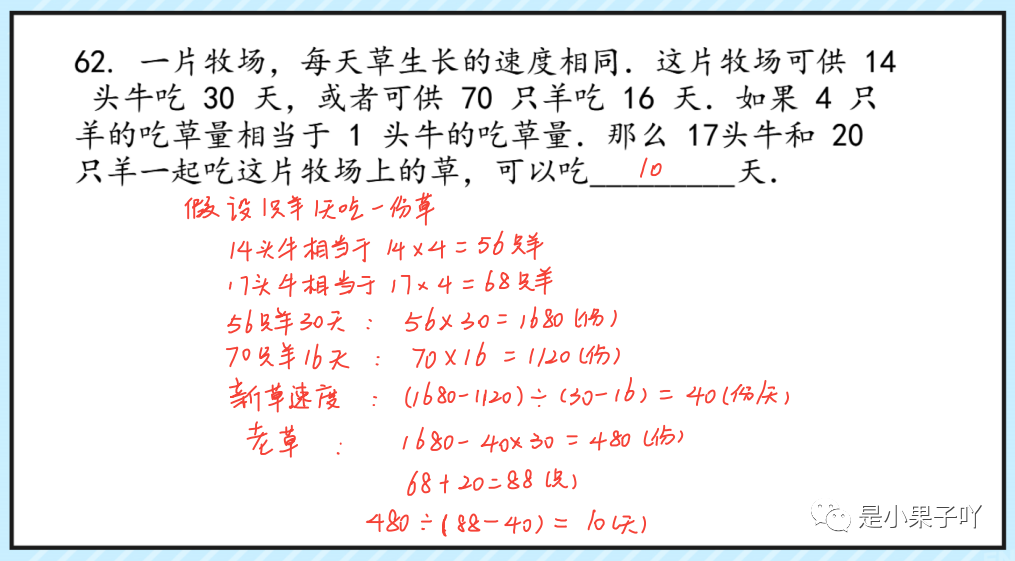 62. 一片牧场，每天草生长的速度相同．这片牧场可供 14
头牛吃 30 天，或者可供 70 只羊吃 16 天．如果 4 只
羊的吃草量相当于 1 头牛的吃草量．那么 17头牛和 20
只羊一起吃这片牧场上的草，可以吃____10____天．
假设1只羊1天吃一份草
14头牛相当于 14×4=56只羊
17头牛相当于 17×4=68只羊
56只羊30天： 56×30=1680(份)
70只羊16天： 70×16=1120(份)
新草速度： (1680-1120)÷(30-16)=40(份/天)
老草： 1680-40×30=480(份)
68+20=88(只)
480÷(88-40)=10(天)
是小果子吖